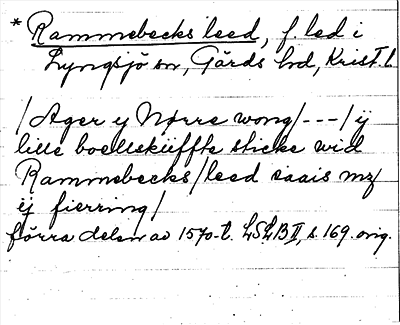 * Rammebecks leed, f. led i
Lyngsjö sn, Gärds hd, Krist. l.
/Ager y Nørre wong/---/ij
lille boellskiiffte sticke wid
Rammebecks/leed saais mz
ij fierring/
förra delen av 1570-t. LSLB II, s. 169. orig.